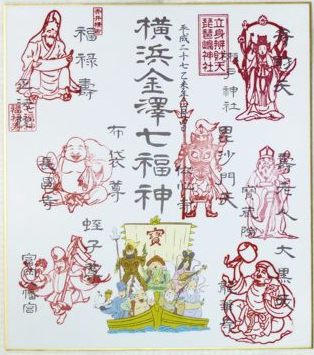 立身辨財天
琵琶嶋神社
弁財天
瀬戸神社
壽老人
寶蔵院
大黒天
龍華寺
横浜金澤七福神
平成二十七乙未年
毘沙門天
伝心寺
布袋尊
長國寺
蛭子尊
富岡八幡宮
福禄寿
寶